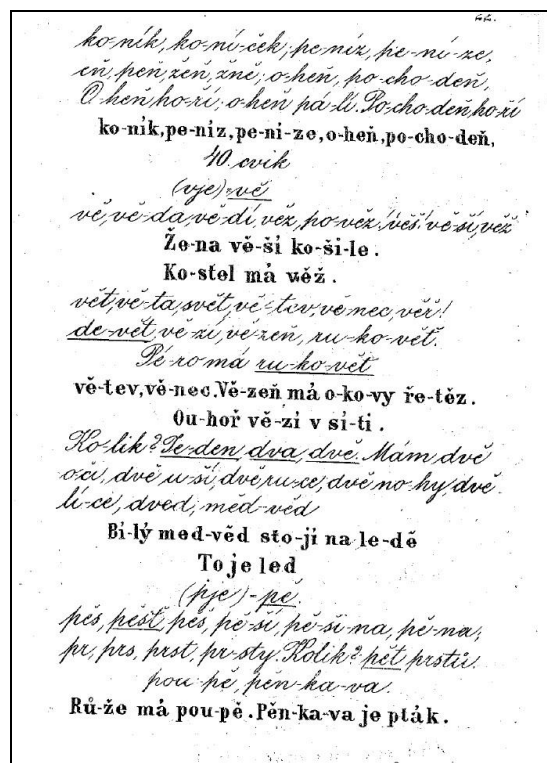 44.
ko-ník, ko-ní-ček; pe-níz, pe-ní-ze,
eň, peň, žeň, žně; o-heň, po-cho-deň,
O-heň ho-ří; o-heň pá-lí. Po-cho-deň ho-ří
ko-ník, pe-níz, pe-ni-ze, o-heň, po-cho-deň,
40. cvik
(vje)-vě
vě, vě-da, vě-dí, věz, po-věz! věš! vě-ší, věž
Že-na vě-ší ko-ši-le.
Ko-stel má věž.
vět, vě-ta, svět, vě-tev, vě-nec, věř!
de-vět, vě-zí, vě-zeň, ru-ko-věť.
Pé-ro má ru-ko-věť
vě-tev, vě-nec. Vě-zeň má o-ko-vy ře-těz.
Ou-hoř vě-zí v sí-ti.
Ko-lik? Je-den, dva, dvě. Mám dvě
o-či, dvě u-ši, dvě ru-ce, dvě no-hy, dvě
lí-ce, dved, med-věd
Bí-lý med-věd sto-jí na le-dě
To je led
(pje)-pě.
pěs, pěst, pěš, pě-ší, pě-ši-na, pě-na,
pr, prs, prst, pr-sty. Kolik? pět prstů.
pou-pě, pěn-ka-va.
Rů-že má pou-pě. Pěn-ka-va je pták.